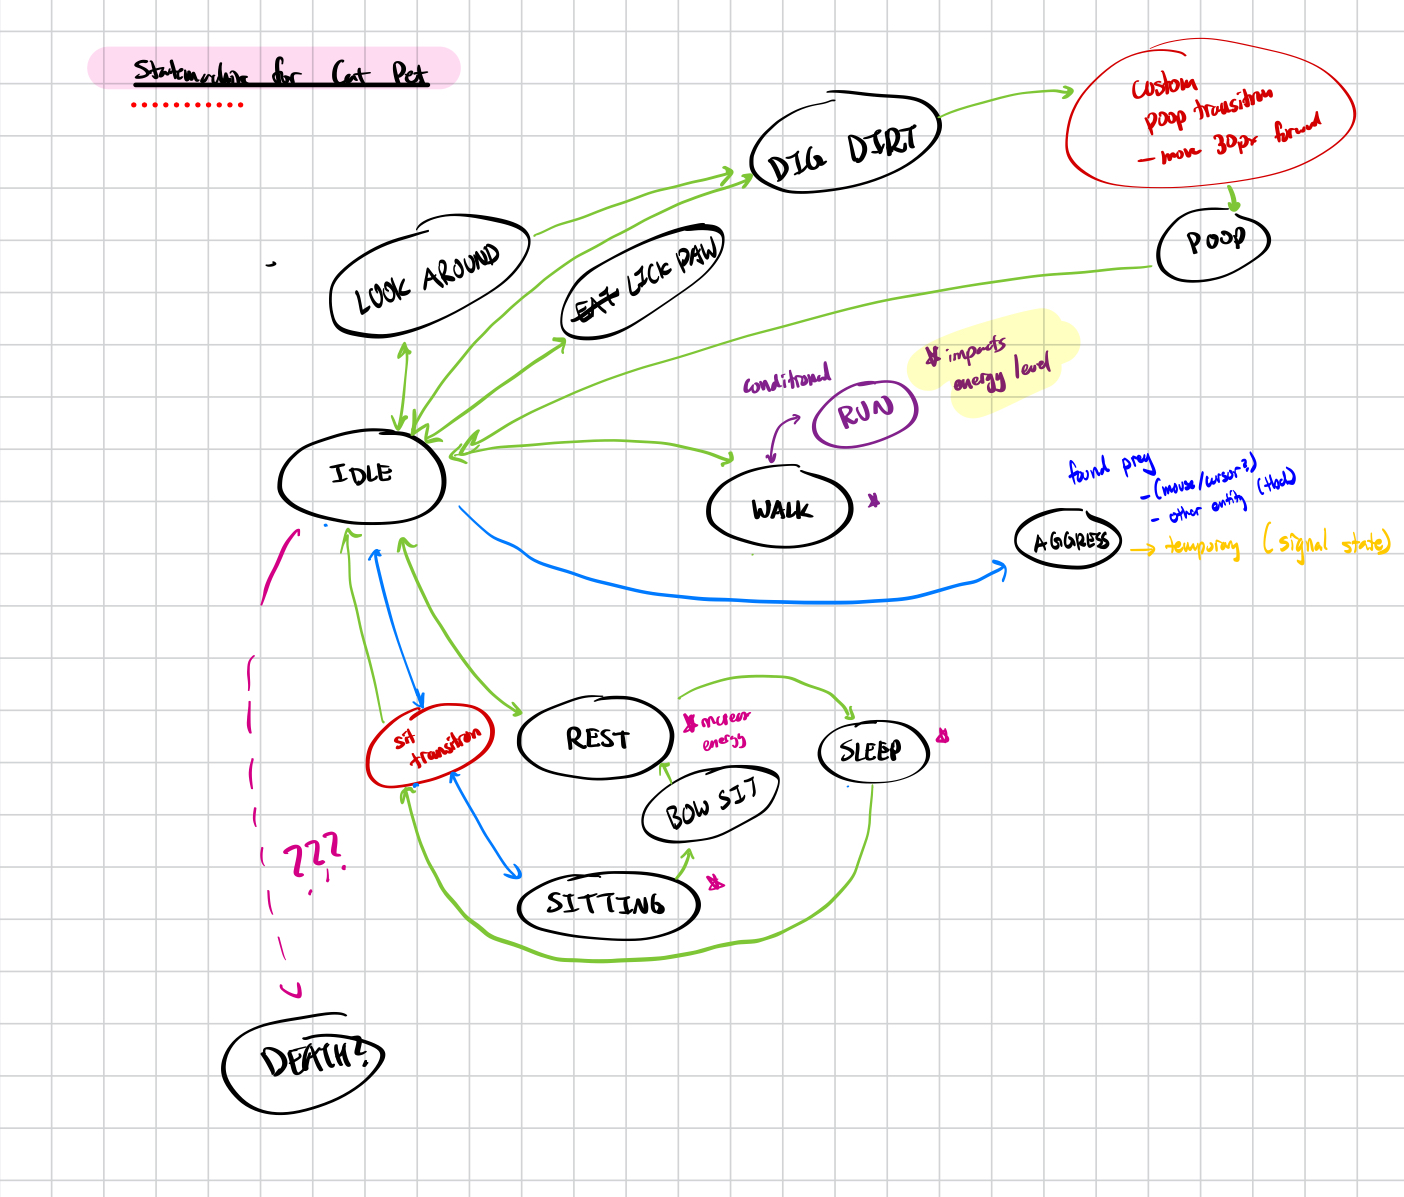 Statemachine for Cat Pet
DIG DIRT
custom
poop transition
- move 30px forward
POOP
LOOK AROUND
EAT LICK PAW
conditional
RUN
* impacts
energy level
IDLE
WALK *
found prey
- (mouse/cursor?)
- other entity (tbd)
AGGRESS
→ temporary (signal state)
sit
transition
REST
* increase
energy
SLEEP *
BOW SIT
SITTING *
???
DEATH?